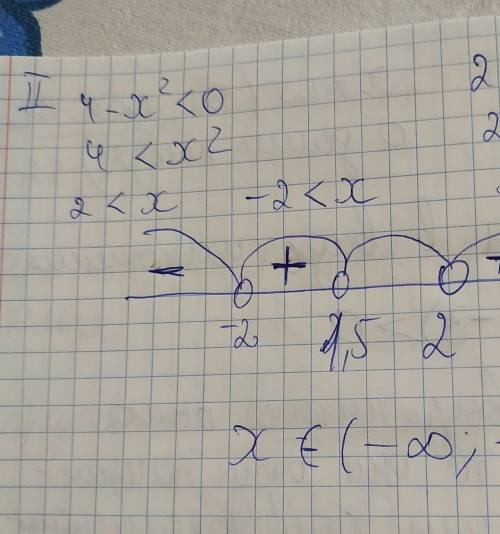 II 4-x²<0
2
4 <x²
2
2 < x -2 < x
- +
-2 1,5 2
x ∈ (-∞;